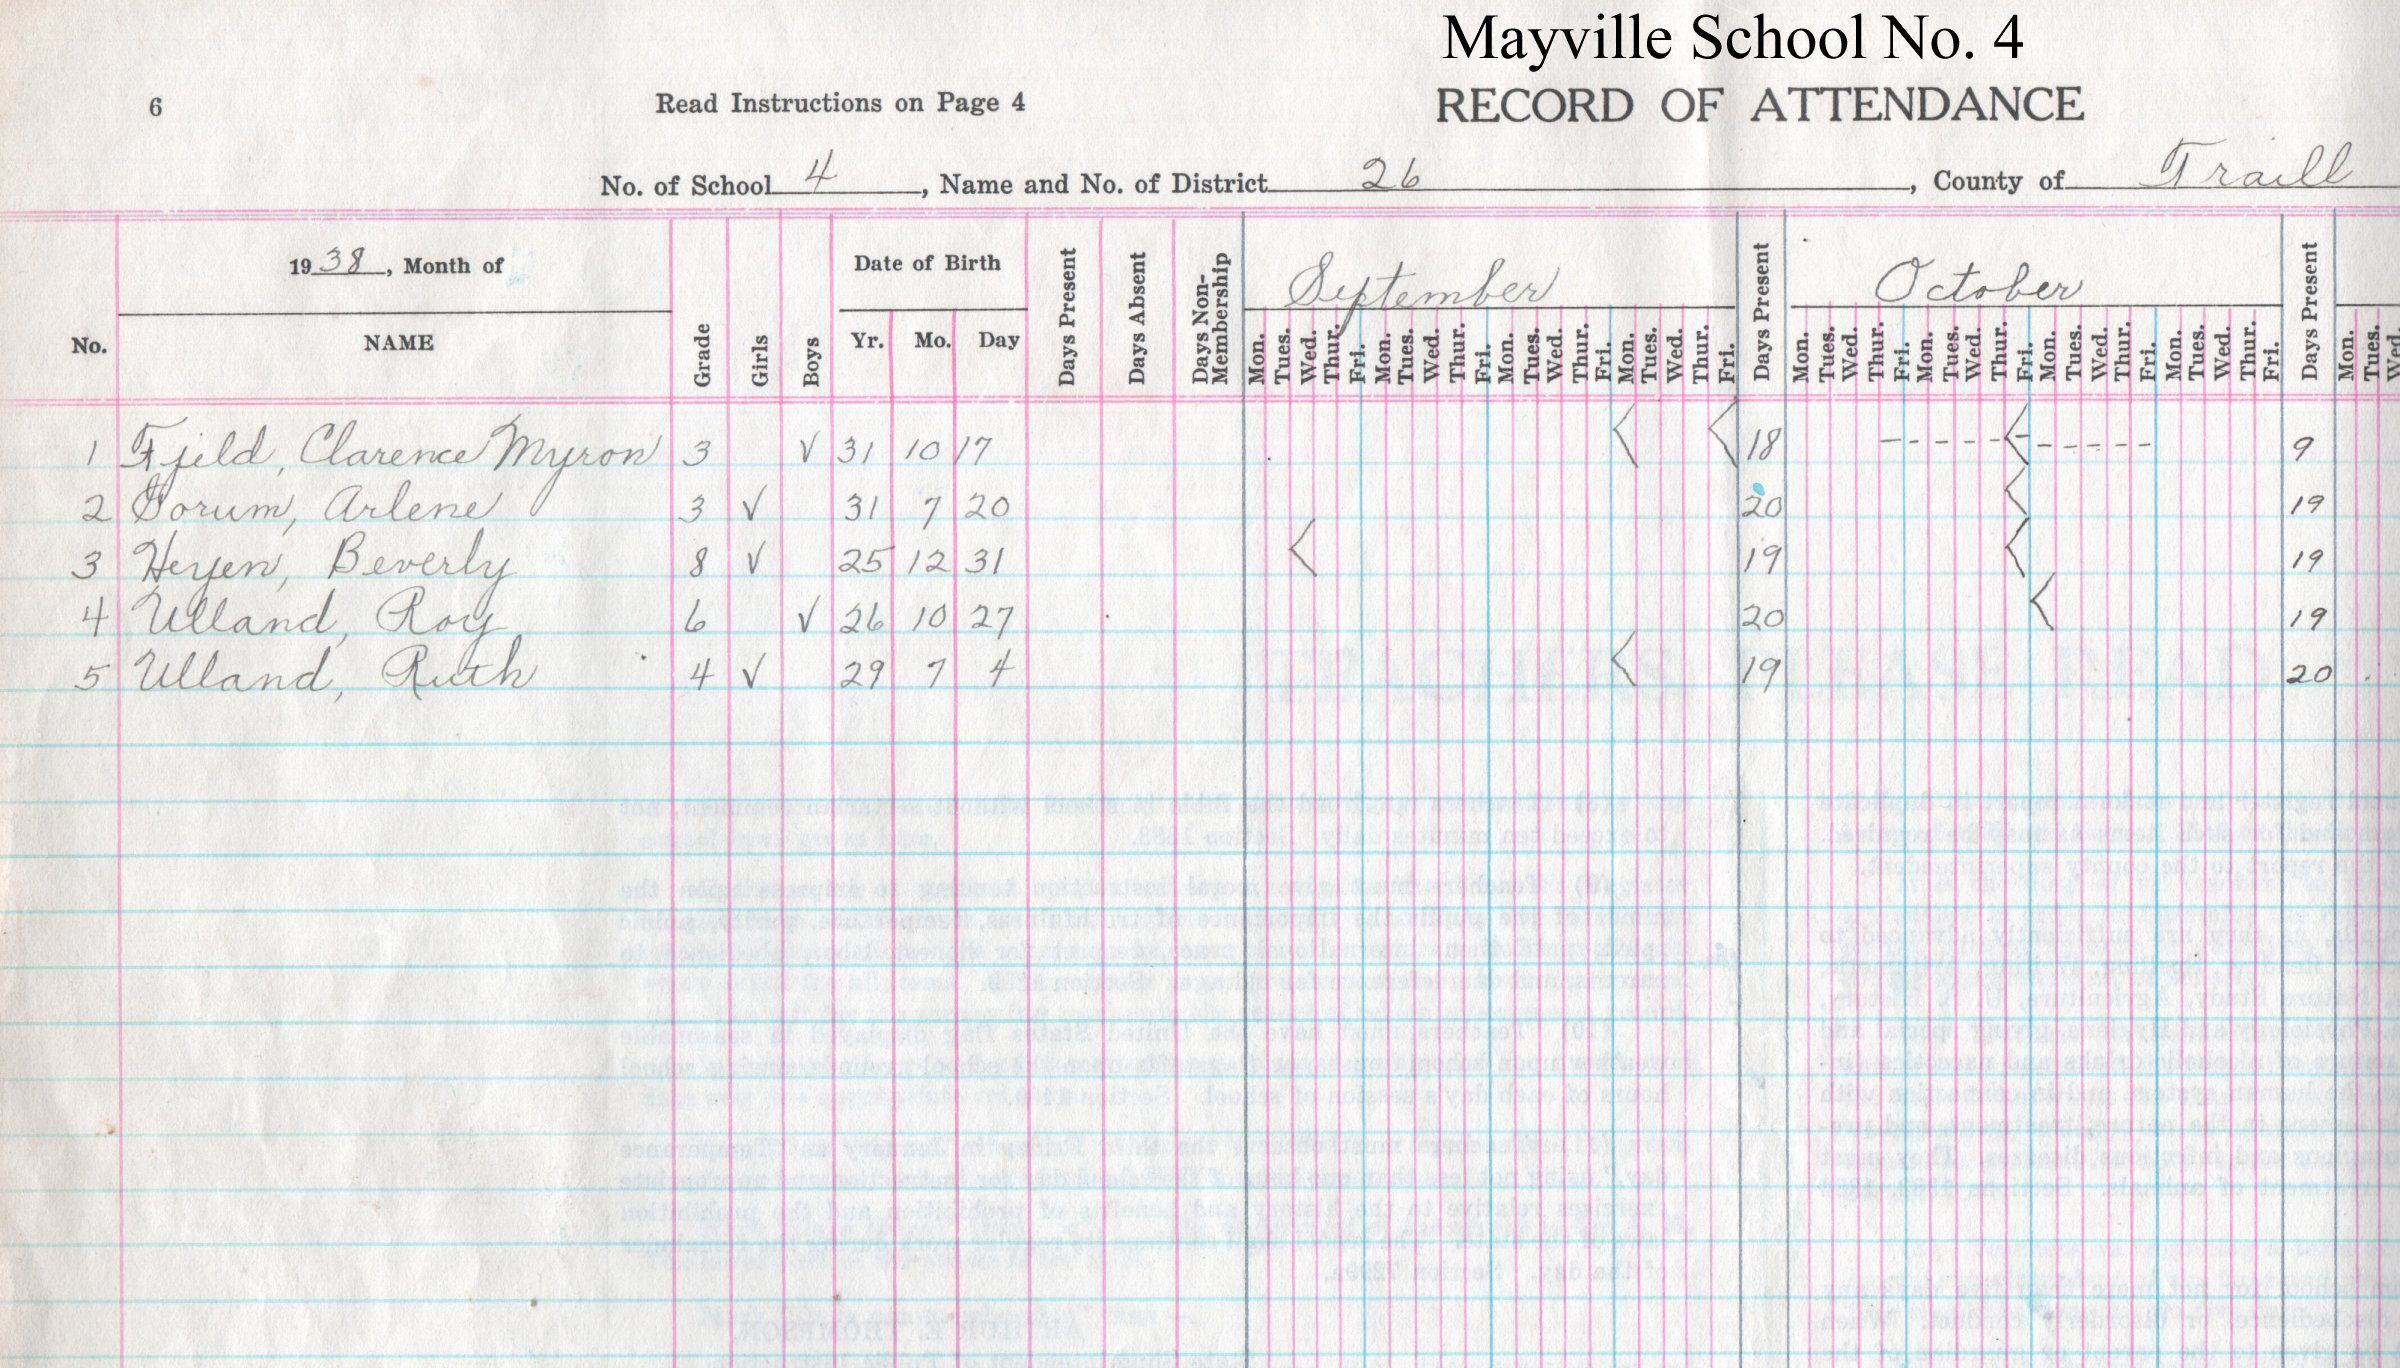 Mayville School No. 4
6 Read Instructions on Page 4 RECORD OF ATTENDANCE
No. of School 4, Name and No. of District 26, County of Traill
1938, Month of Date of Birth September October
No. NAME Grade Girls Boys Yr. Mo. Day Days Present Days Absent Days Non-Membership Mon. Tues. Wed. Thur. Fri. Mon. Tues. Wed. Thur. Fri. Mon. Tues. Wed. Thur. Fri. Mon. Tues. Wed. Thur. Fri. Days Present Mon. Tues. Wed. Thur. Fri. Mon. Tues. Wed. Thur. Fri. Mon. Tues. Wed. Thur. Fri. Mon. Tues. Wed. Thur. Fri. Days Present Mon. Tues. Wed
1 Fjeld, Clarence Myron 3 √ 31 10 17 18 9
2 Gorum, Arlene 3 √ 31 7 20 20 19
3 Heyen, Beverly 8 √ 25 12 31 19 19
4 Ulland, Roy 6 √ 26 10 27 20 19
5 Ulland, Ruth 4 √ 29 7 4 19 20